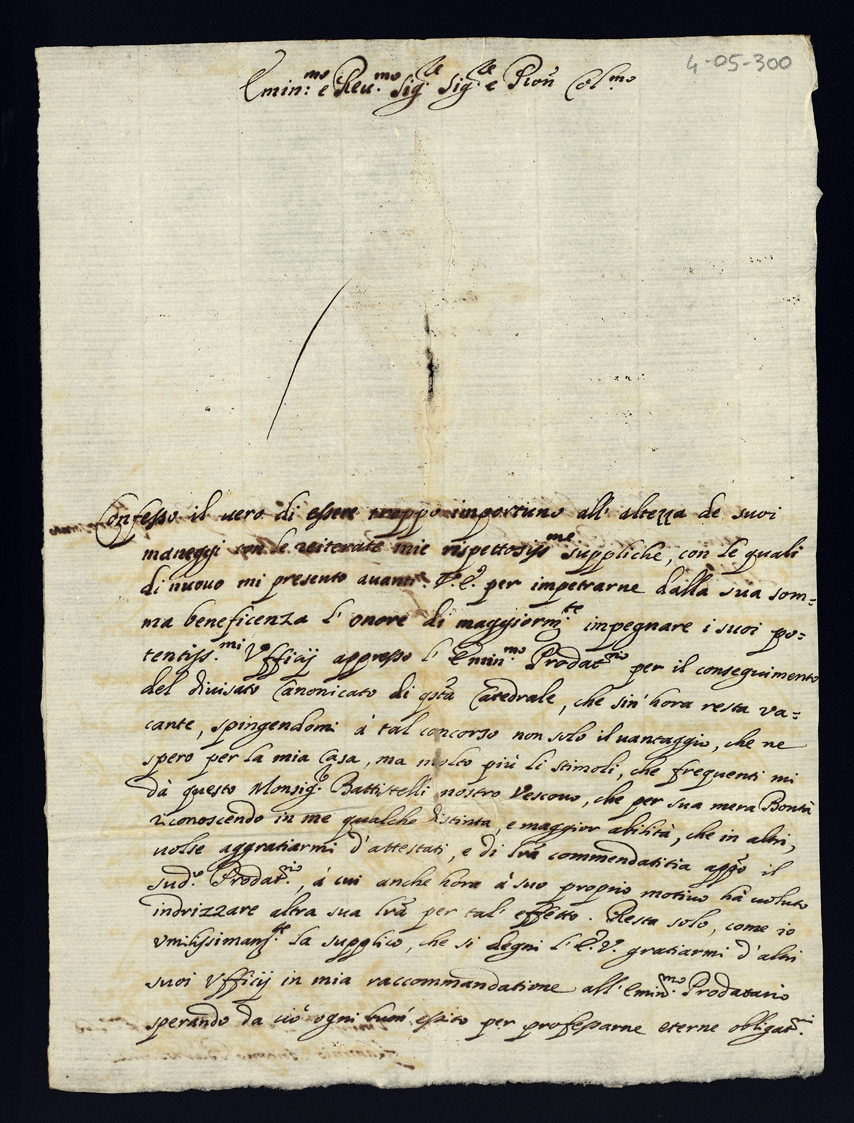 4-05-300
Emin:mo e Reu.mo Sig.re Sig.re e Pron Col.mo
Confesso il uero di essere troppo importuno all' altezza de suoi
maneggi con le reiterate mie rispettosiss.me suppliche, con le quali
di nuouo mi presento auanti V. E. per impetrarne dalla sua som=
ma beneficenza l' onore di maggiorm.te impegnare i suoi po=
tentiss.mi Vfficij appresso l' Emin.mo Prodat.rio per il conseguimento
del diuisato Canonicato di qsta Catedrale, che sin' hora resta va=
cante, spingendomi à tal concorso non solo il uantaggio, che ne
spero per la mia Casa, ma molto più li stimoli, che frequenti mi
dà questo Monsig.r Battistelli nostro Vescouo, che per sua mera Bontà
riconoscendo in me qualche distinta, e maggior abilità, che in altri,
uolse aggratiarmi d'attestati, e di lrã commendatitia appo il
sud.o Prodat.rio, à cui anche hora à suo proprio motiuo hà uoluto
indrizzare altra sua lrã per tal' effetto. Resta solo, come io
vmilissimam.te la supplico, che si degni l' E. V. gratiarmi d' altri
suoi Vfficij in mia raccommandatione all' Emin.mo Prodatario
sperando da ciò ogni buon' essito per professarne eterne obligat.ni